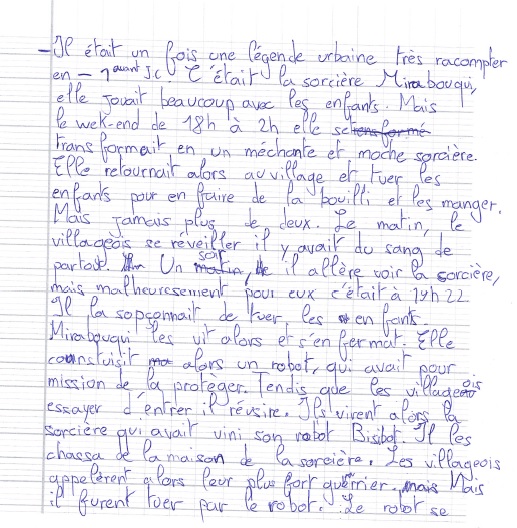 - Il était un fois une légende urbaine très racompter
en - 1 avant J.C C'était la sorcière Mirabouqui,
elle jouait beaucoup avec les enfants. Mais
le wek-end de 18h à 2h elle se transformé
transformait en un méchante et moche sorcière.
Elle retournait alors au village et tuer les
enfants pour en faire de la bouilli et les manger.
Mais jamais plus de deux. Le matin, le
villageois se réveiller il y avait du sang de
partout. Un matin, soir il allère voir la sorcière,
mais malheuresement pour eux c'était à 19h22
Il la sopçonnait de tuer les enfants.
Mirabouqui les vit alors et s'enfermat. Elle
counstuisit ma alors un robot, qui avait pour
mission de la protèger. Tendis que les villageois
essayer d'entrer il réusire. Ils virent alors la
sorcière qui avait vini son robot Bisibot. Il les
chassa de la maison de la sorcière. Les villageois
appelèrent alors leur plus fort guérrier. mais Mais
il furent tuer par le robot. Le robot se